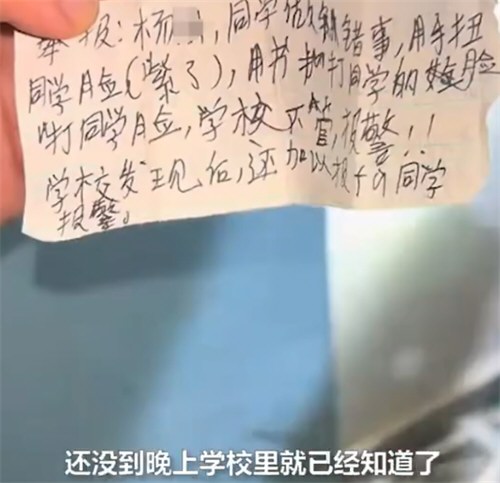 举报:杨,同学做错事,用手扭
同学脸(紫了),用书打同学的脸
打同学脸,学校不管,报警!!
学校发现后,还加以同学
报警。
还没到晚上学校里就已经知道了